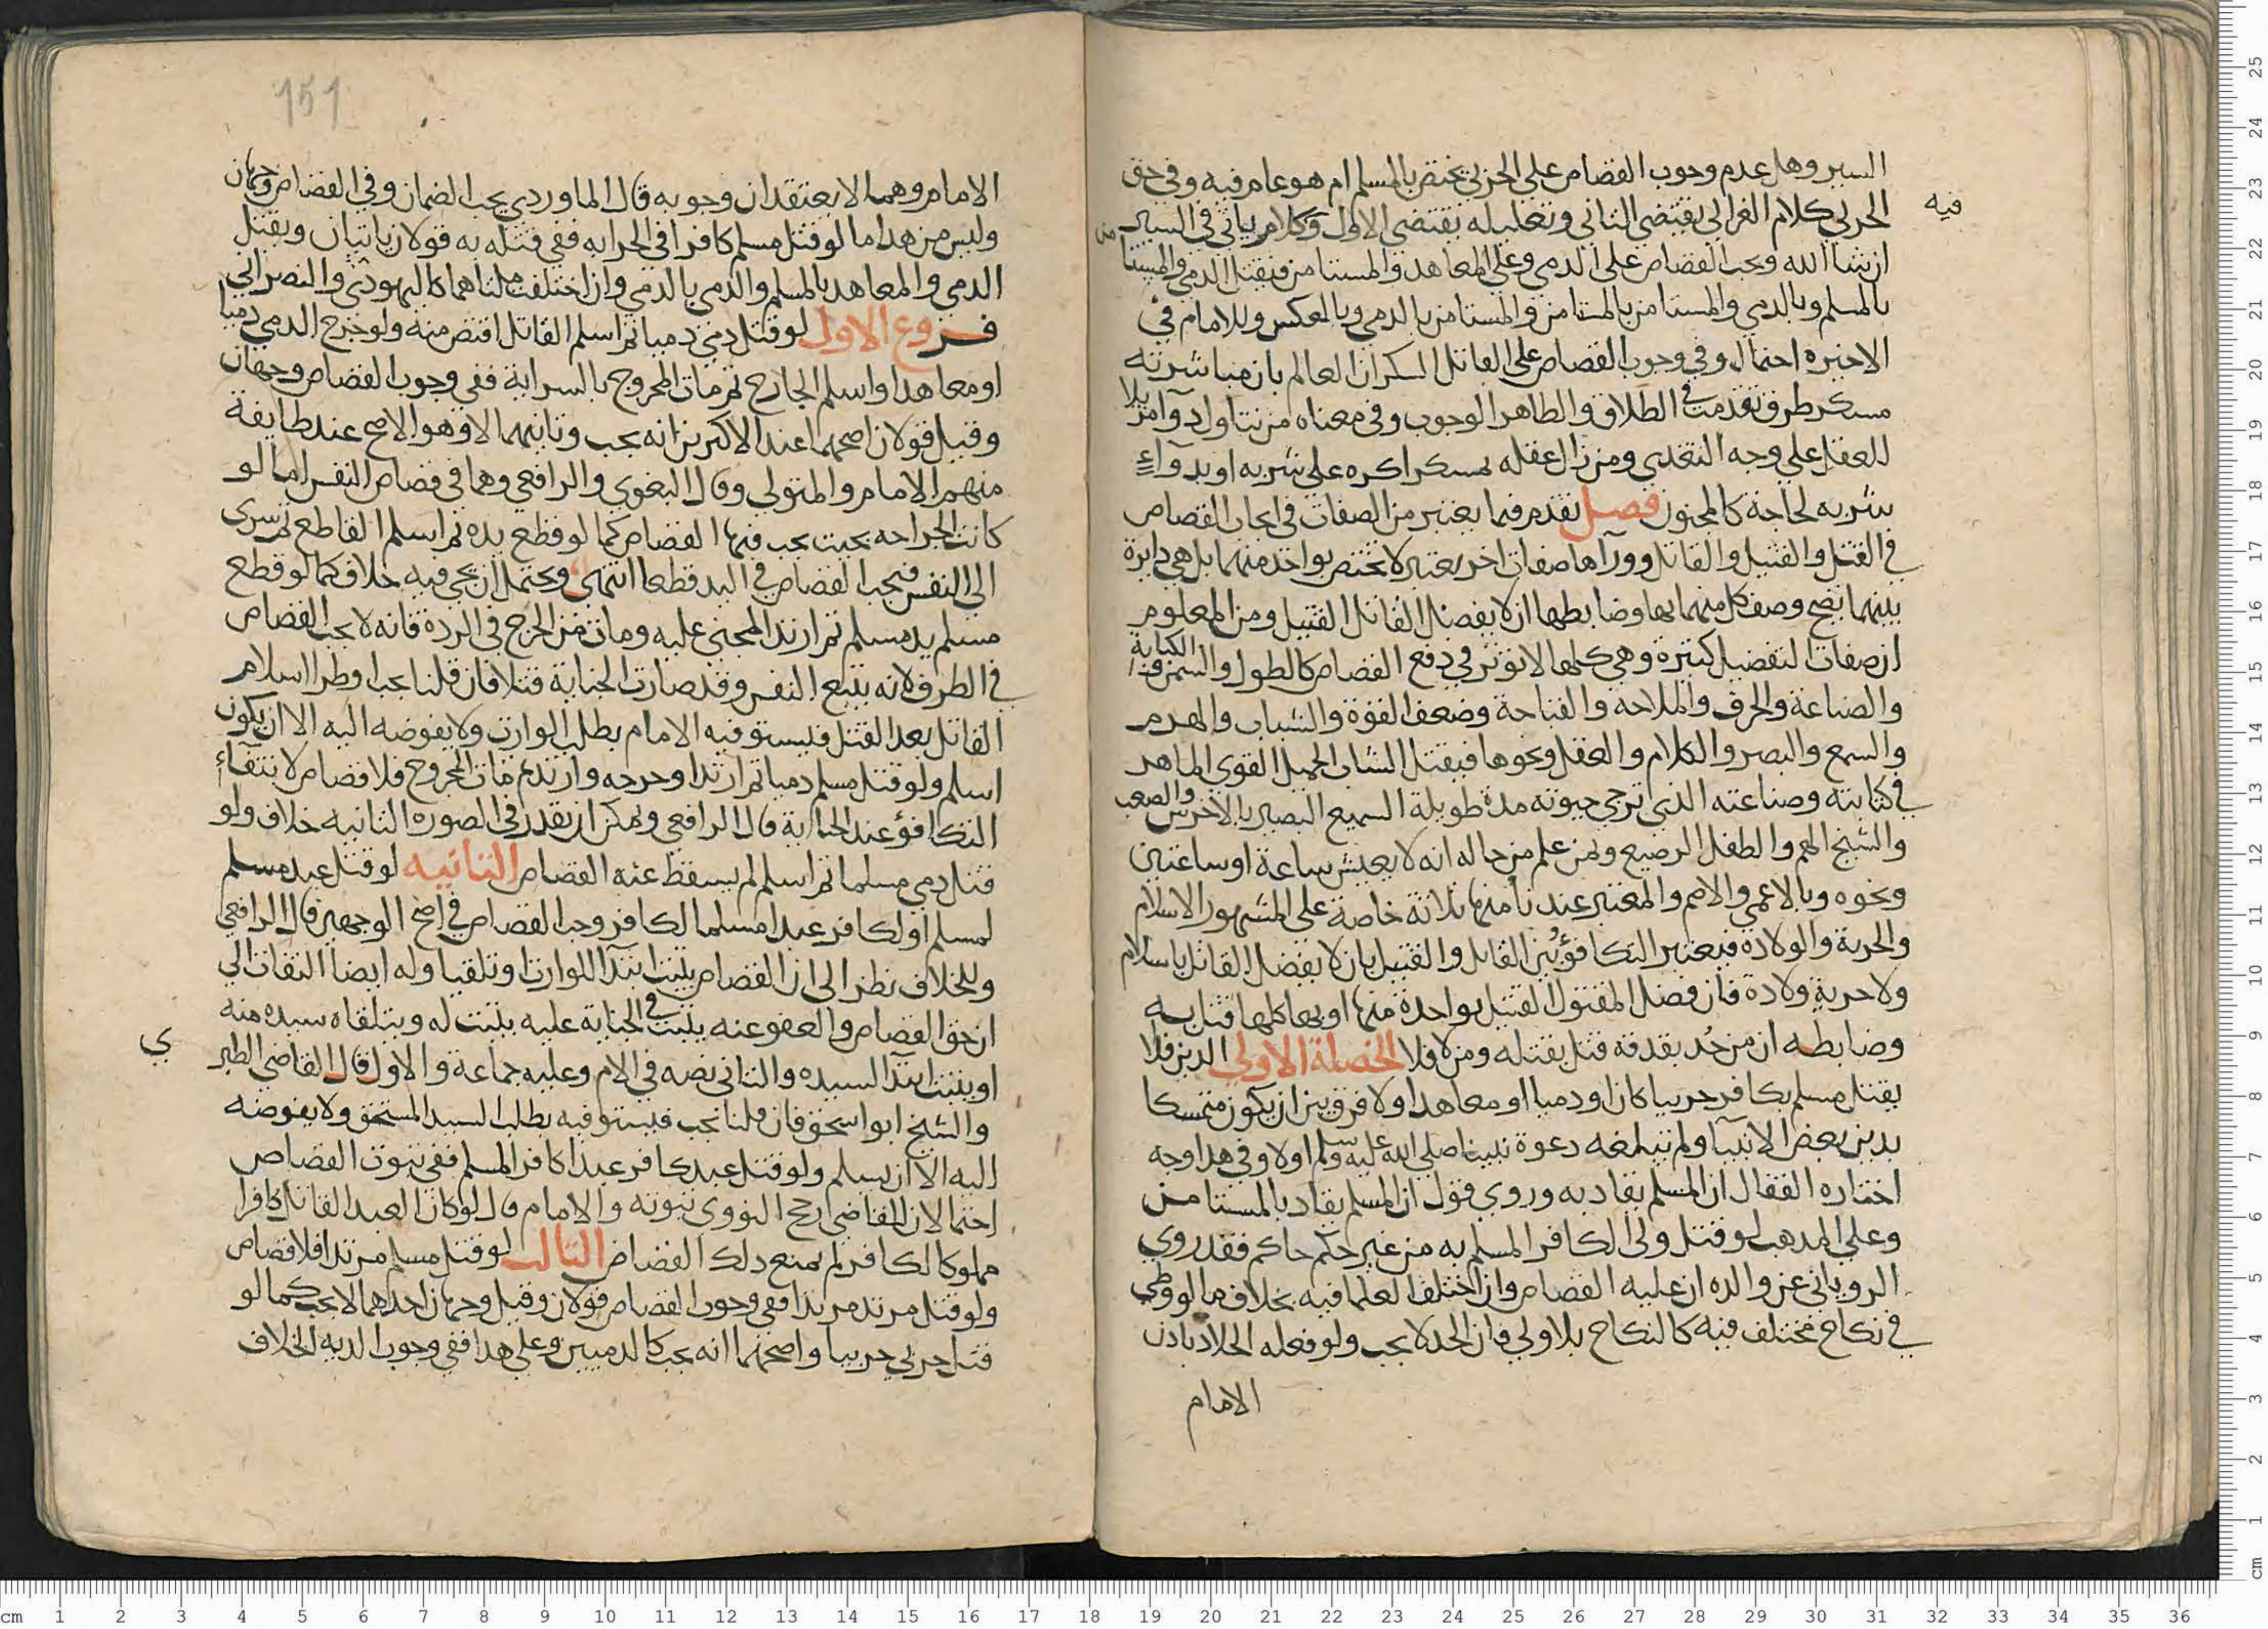 السير وهل عدم وجوب القصاص على الحربي يختص بالمسلم ام هو عام فيه وفي حق
فيه
الحربي كلام الغزالي يقتضي الثاني وتعليله يقتضي الاول وكلام ياتي في السير
ان شا الله ويجب القصاص على الذمي وعلى المعاهد والمستامن فيقتل الذمي والمستا
من
بالمسلم وبالذمي والمستامن بالمستامن والمستامن بالذمي وبالعكس وللامام في
الاخيره احتمال وفي وجوب القصاص على القاتل السكران العالم بان مباشرته
مسكر طرق تقدمت في الطلاق والظاهر الوجوب وفي معناه من تناول دوآ مزيلا
للعقل على وجه التعدي ومن زال عقله بمسكر اكره على شربه او بدوآء
شربه لحاجة كالمجنون فصل تقدم فيما يعتبر من الصفات في ايجاب القصاص
في القتل والقتيل والقاتل وورآها صفات اخر يعتبر لا تختص بواحد منهما بل هي دايرة
بينهما يصح وصف كل منهما بها وضابطها ان لا يفضل القاتل القتيل ومن المعلوم
ان صفات التفضيل كثيرة وهي كلها لا تؤثر في دفع القصاص كالطول والسمن
الكتابة
والصناعة والحرف والملاحه والقباحة وضعف القوة والشباب والهرم
والسمع والبصر والكلام والعقل ونحوها فيقتل الشاب الجميل القوي الماهر
في كتابته وصناعته الذي ترجى حيوته مدة طويلة السميع البصير بالاخرس والصعب
والشيخ الهم والطفل الرضيع ولمن علم من حاله انه لا يعيش ساعة او ساعتين
ونحوه وبالاعمى والاصم والمعتبر عندنا منها ثلاثة خاصة على المشهور الاسلام
والحرية والولادة فيعتبر التكافؤ بين القاتل والقتيل بان لا يفضل القاتل باسلام
ولا حرية ولادة فان فضل المقتول القتيل بواحدة منها او بها كلها قتل به
وضابطه ان من حُد بقذفه قتل بقتله ومن لا فلا الخصلة الاولى الدين فلا
يقتل مسلم بكافر حربيا كان او ذميا او معاهدا ولا فرق بين ان يكون متمسكا
بدين بعض الانبيآ ولم تبلغه دعوة نبينا صلى الله عليه وسلم او لا وفي هذا وجه
اختاره القفال ان المسلم يقاد به وروي قول ان المسلم يقاد بالمستامن
وعلى المذهب لو قتل ولي الكافر المسلم به من غير حكم حاكم فقد روي
الروياني عن والده ان عليه القصاص وان اختلف العلما فيه بخلاف ما لو وطي
في نكاح مختلف فيه كالنكاح بلا ولي فان الحد لا يجب ولو فعله الجلاد باذن
الامام
151
الامام وهما لا يعتقدان وجوبه قال الماوردي يجب الضمان وفي القصاص وجهان
وليس من هذا ما لو قتل مسلم كافرا في الحرابه ففي قتله به قولان ياتيان ويقتل
الذمي والمعاهد بالمسلم والذمي بالذمي وان اختلفت ملتاهما كاليهودي والنصراني
فروع الاول لو قتل ذمي ذميا ثم اسلم القاتل اقتص منه ولو جرح الذمي ذميا
او معاهدا واسلم الجارح ثم مات المجروح بالسراية ففي وجوب القصاص وجهان
وقيل قولان اصحهما عند الاكثرين انه يجب وثانيهما لا وهو الاصح عند طايفة
منهم الامام والمتولي وقال البغوي والرافعي وهما في قصاص النفس اما لو
كانت الجراحه بحيث يجب فيها القصاص كما لو قطع يده ثم اسلم القاطع ثم سرى
الى النفس فيجب القصاص في اليد قطعا انتهى ويحتمل ان يجي فيه خلاف كما لو قطع
مسلم يد مسلم ثم ارتد المجني عليه ومات من الجرح في الردة فانه لا يجب القصاص
في الطرف لانه يتبع النفس وقد صارت الجناية قتلا فان قلنا يجب او طرا اسلام
القاتل بعد القتل فيستوفيه الامام بطلب الوارث ولا يفوضه اليه الا ان يكون
اسلم ولو قتل مسلم ذميا ثم ارتد او جرحه وارتد ثم مات المجروح فلا قصاص لانتفآء
التكافؤ عند الجناية قال الرافعي ويمكن ان يقدر في الصورة الثانيه خلاف ولو
قتل ذمي مسلما ثم اسلم لم يسقط عنه القصاص الثانيه لو قتل عبد مسلم
لمسلم او لكافر عبدا مسلما لكافر وجب القصاص في اصح الوجهين قال الرافعي
وللخلاف نظر الى ان القصاص يثبت ابتدآ للوارث او تلقيا وله ايضا التفات الى
ان حق القصاص والعفو عنه يثبت في الجناية عليه يثبت له ويتلقاه سيده منه
او يثبت ابتدآ لسيده والثاني نصه في الام وعليه جماعة والاول قال القاضي الطبر
ي
والشيخ ابو اسحق فان قلنا يجب فيستوفيه بطلب السيد المستحق ولا يفوضه
اليه الا ان يسلم ولو قتل عبد كافر عبدا كافر المسلم ففي ثبوت القصاص
احتمالان للقاضي ارجح النووي ثبوته والامام قال لو كان العبد القاتل كافرا
مملوكا لكافر لم يمنع ذلك القصاص الثالث لو قتل مسلم مرتدا فلا قصاص
ولو قتل مرتد مرتدا ففي وجوب القصاص قولان وقيل وجهان احدهما لا يجب كما لو
قتل حربي حربيا واصحهما انه يجب كالذميين وعلى هذا ففي وجوب الديه الخلاف